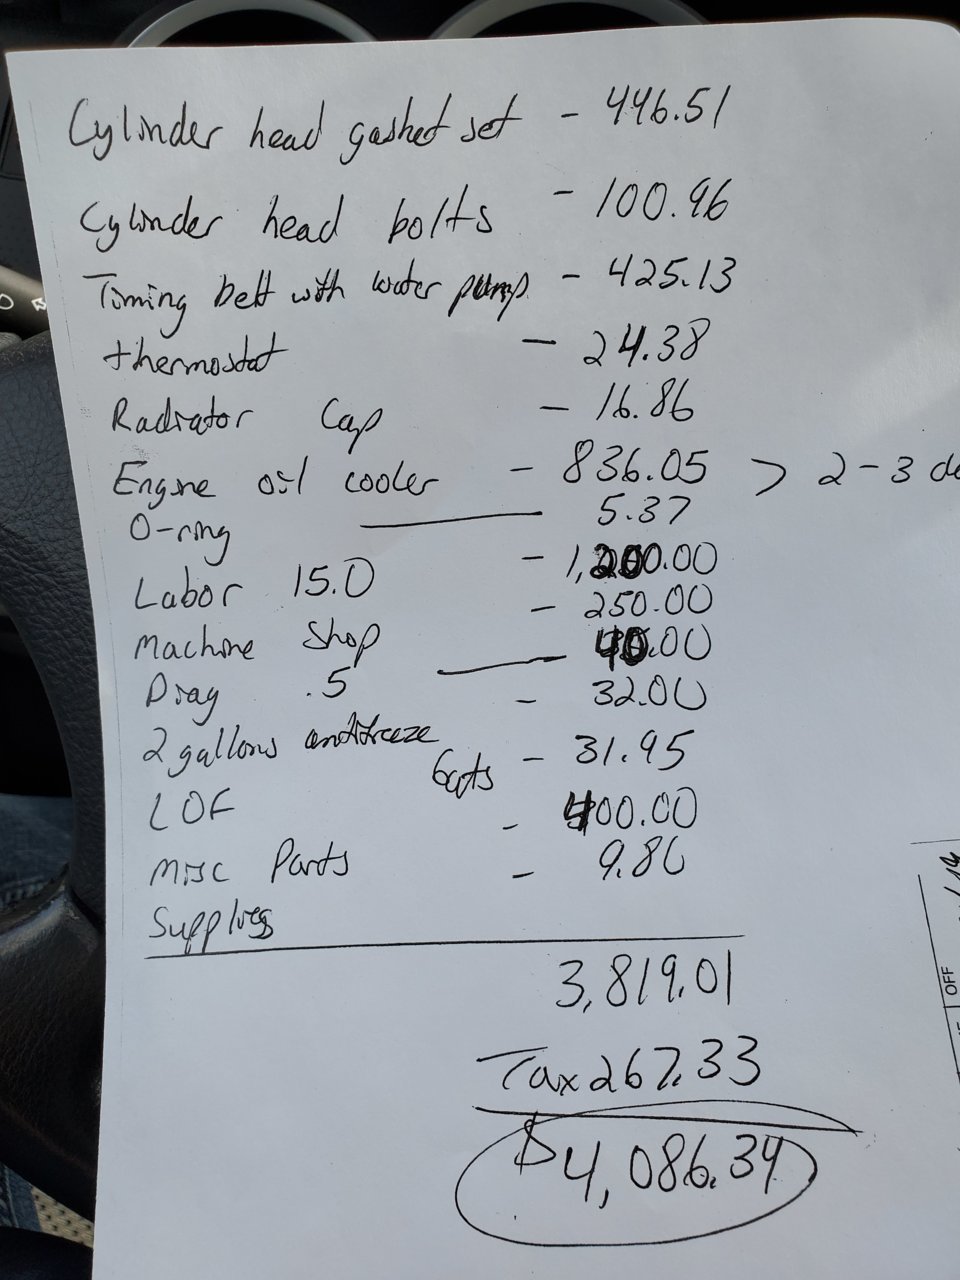 Cylinder head gasket set - 446.51
Cylinder head bolts - 100.96
Timing belt with water pump - 425.13
thermostat - 24.38
Radiator Cap - 16.86
Engine oil cooler - 836.05 > 2-3 da
O-ring — 5.37
Labor 15.0 - 1,200.00
Machine Shop - 250.00
Diag .5 — 40.00
2 gallons antifreeze - 32.00
LOF 6qts - 31.95
Misc Parts - 400.00
Supplies - 9.80
3,819.01
Tax 267.33
$4,086.34
OFF